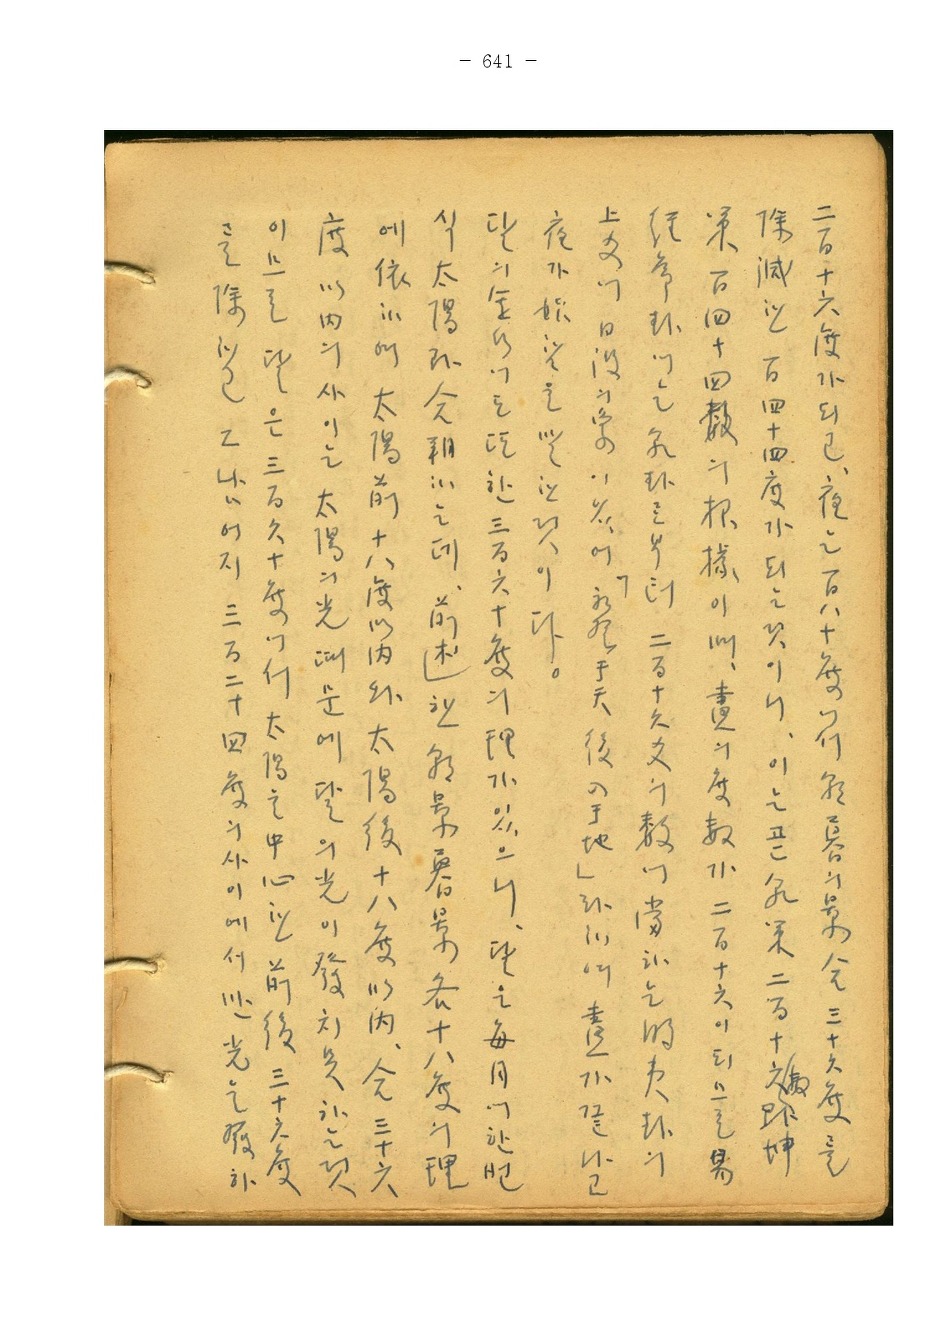 - 641 -
二百十六度가되고、夜는百八十度에서 朝暮의景 合三十六度를
除減한 百四十四度가되는것이니、이는곧 乾策 二百十六數와坤
策 百四十四數의根據이며、晝의度數가 二百十六이되므로 易
經 序卦에는 乾卦로부터 二百十六爻의數에 當하는 明夷卦의
上爻에 日沒의象이있어「初登于天 後入于地」라하여 晝가끝나고
夜가始함을 말한것이다。
달의 에도 또한 三百六十度의理가있으니、달은每月에한번
식 太陽과合朔하는데、前述한 朝景暮景 各十八度의理
에依하여 太陽前十八度以內와 太陽後十八度以內、合三十六
度以內의사이는 太陽의光때문에 달의光이發치못하는것
이므로 달은 三百六十度에서 太陽을中心한 前後三十六度
를除하고 그나머지 三百二十四度의사이에서만 光을發하